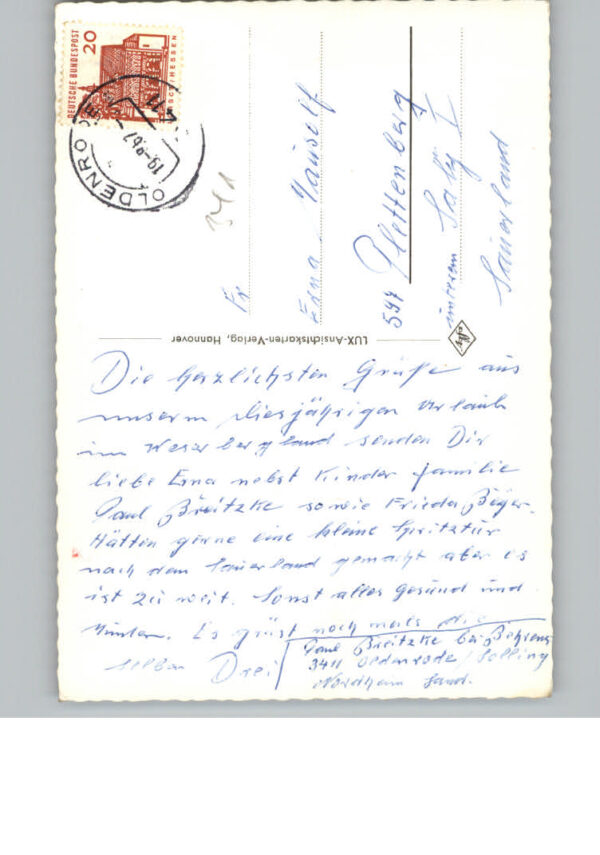 DEUTSCHE BUNDESPOST
20
OLDENRODE
19.-8.67
3411
341
Fr
Erna
597 Plettenberg
unterem Saly I
Sauerland
LUX-Ansichtskarten-Verlag, Hannover
Die herzlichsten Grüße aus
unserm diesjährigen Urlaub
im Weserbergland senden Dir
liebe Erna nebst Kinder familie
Paul Breitzke sowie Frieda Beyer.
Hätten gerne eine kleine Spritztur
nach dem Sauerland gemacht aber es
ist zu weit. Sonst alles gesund und
munter. Es grüst noch mals die
selben Drei
Paul Breitzke bei Behrens
3411 Oldenrode / Solling
Nordheim Land.